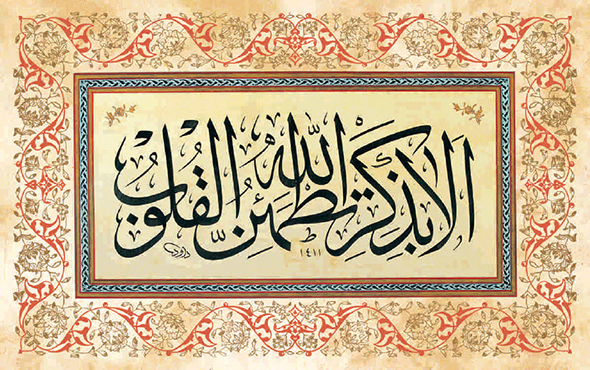 أَلَا بِذِكْرِ اللَّهِ تَطْمَئِنُّ الْقُلُوبُ
١٤١١
داود